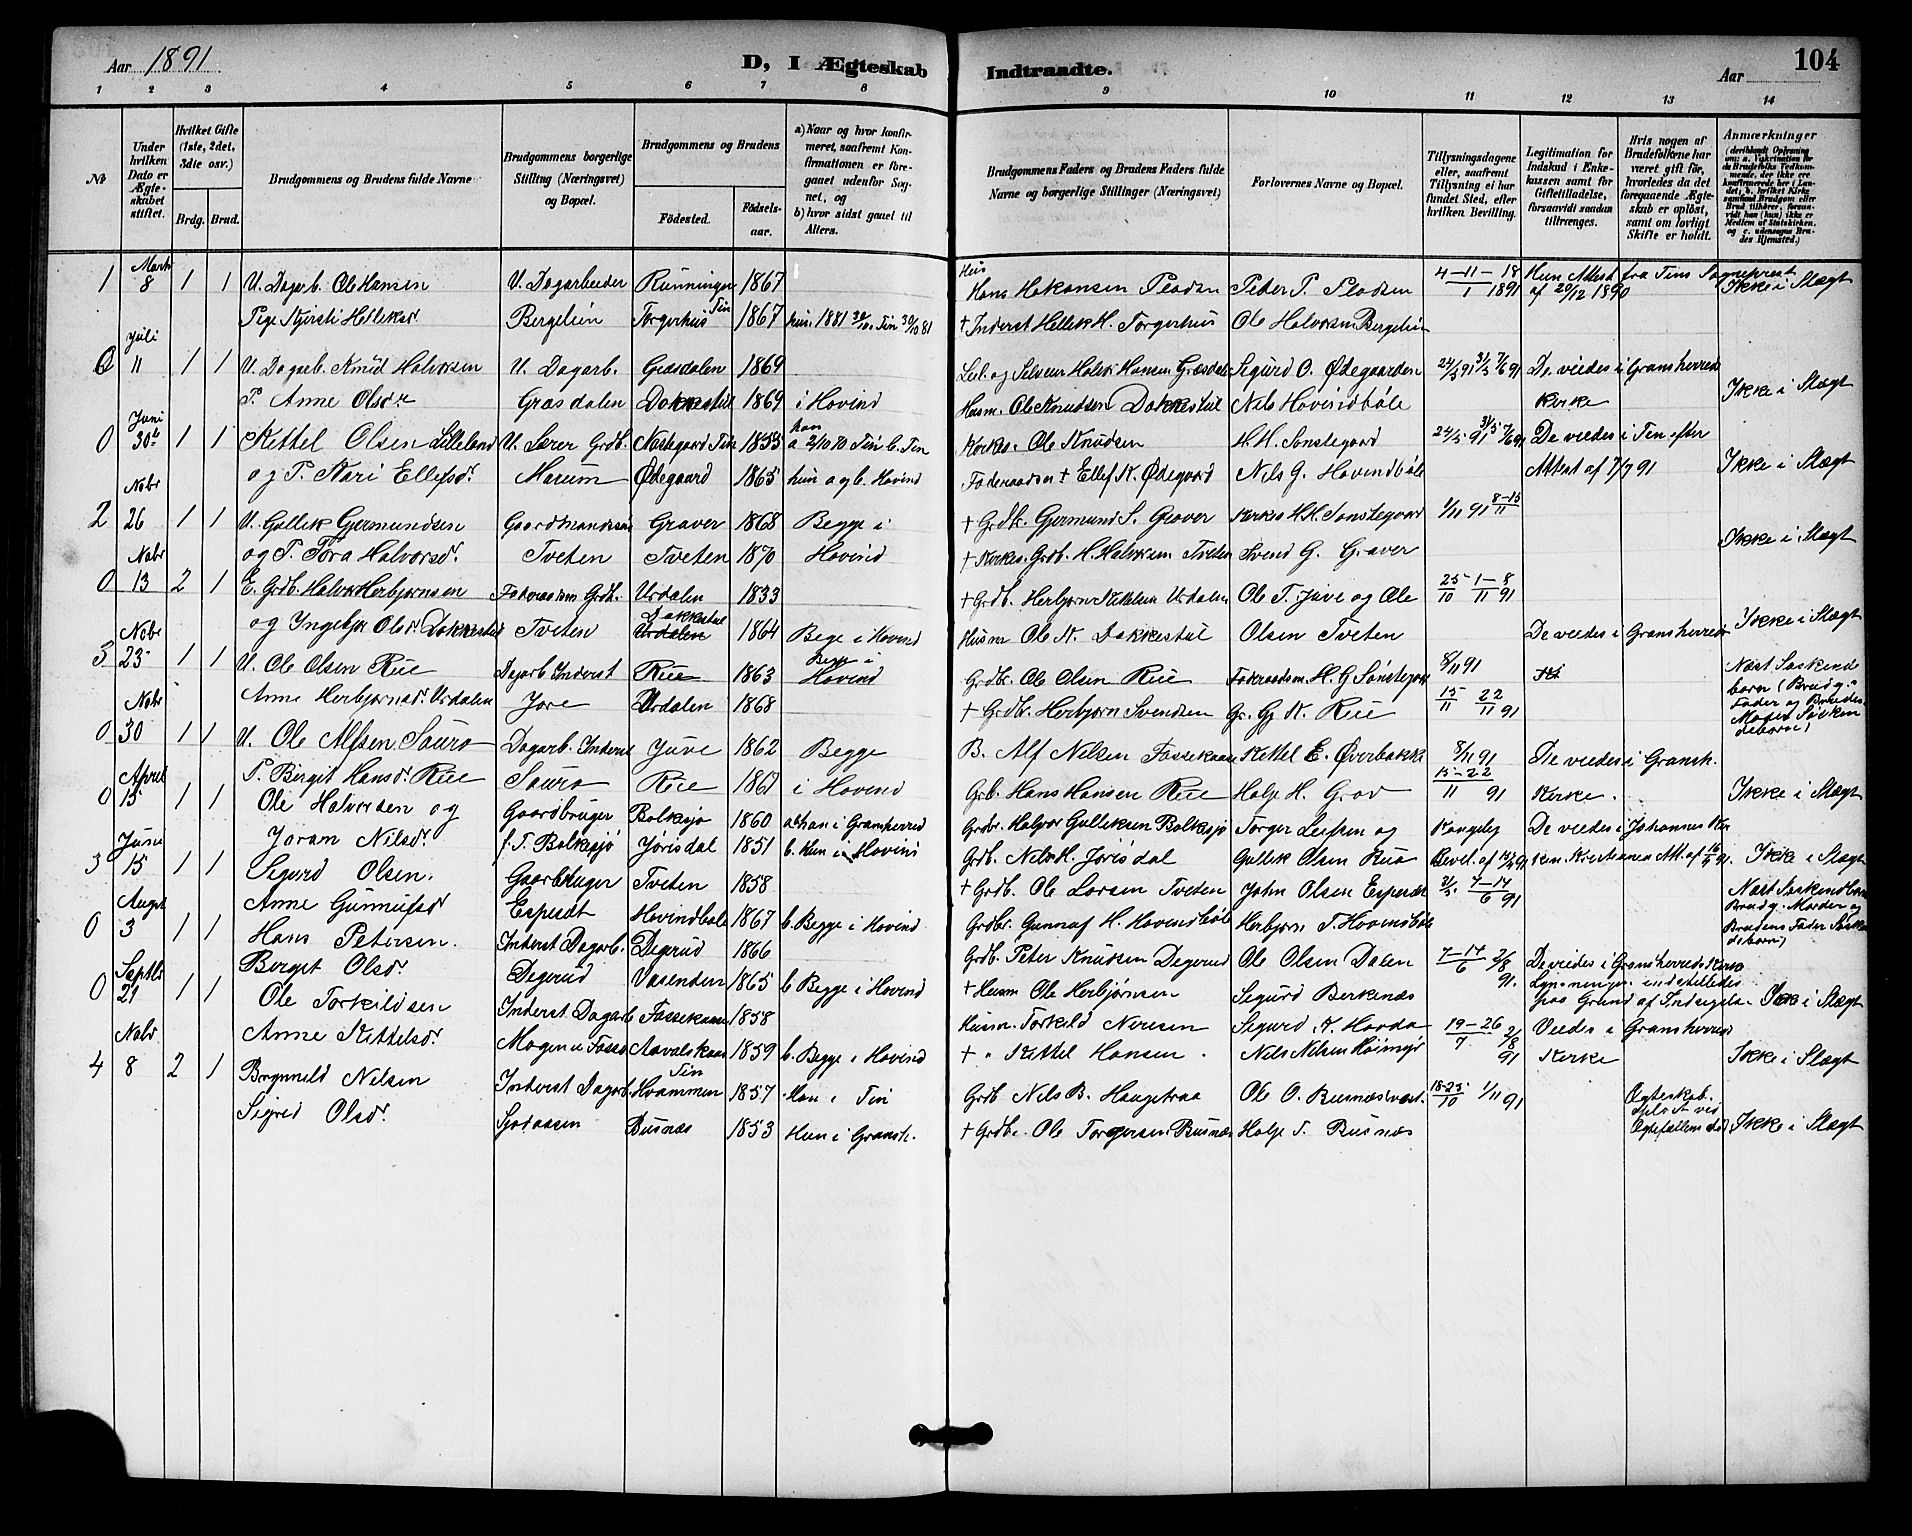 Aar 1891
D, I Ægteskab Indtraadte.
Aar 104
1 2 3 4 5 6 7 8 9 10 11 12 13 14
No
Under hvilken Dato er Ægteskabet stiftet.
Hvilket Gifte (1ste, 2det, 3die osv.)
Brdg. Brud.
Brudgommens og Brudens fulde Navne
Brudgommens borgerlige Stilling (Næringsvei) og Bopæl.
Brudgommens og Brudens
Fødested. Fødselsaar.
a) Naar og hvor konfirmeret, saafremt Konfirmationen er foregaaet udenfor Sognet, og
b) hvor sidst gaaet til Alters.
Brudgommens Faders og Brudens Faders fulde Navne og borgerlige Stillinger (Næringsvei)
Forlovernes Navne og Bopæl.
Tillysningsdagene eller, saafremt Tillysning ei har fundet Sted, efter hvilken Bevilling.
Legitimation for Indskud i Enkekassen samt for Giftetilladelse, forsaavidt saadan tiltrænges.
Hvis nogen af Brudefolkene har været gift før, hvorledes da det foregaaende Ægteskab er opløst, samt om lovligt Skifte er holdt.
Anmærkninger
(deriblandt Oplysning om: a. Vakcination for de Brudefolks Vedkommende, der ikke ere konfirmerede her i Landet, b. hvilket Kirkesamfund Brudgom eller Brud tilhører, forsaavidt han (hun) ikke er Medlem af Statskirken, og c. udensogns Brudes Hjemsted.)
Marts Hus
1 8 1 1 U. Dagarb. Ole Hansen U. Dagarbeider Runningen 1867 Hans Hakansen Pladsen Peder P. Pladsen 4-11-18/1 1891 Hun Attest fra Tins Sogneprest af 20/12 1890 Ikke i Slægt
Pige Kjersti Helleksdr Bergelien Torgerhus Tin 1867 hun. 1881 30/10. Tin 30/10 81 + Inderst Hellek H. Torgerhus Ole Halvorsen Bergelien
Juli
0 11 1 1 U. Dagarb. Knud Halvorsen U. Dagarb. Græsdalen 1869 Leil. og Selveier Halvor Hansen Græsdal Sigurd O. Ødegaarden 24/5 91 31/5 7/6 91 De viedes i Gransherred
P. Anne Olsdr Græsdalen Dokkestul 1869 i Hovind Husm. Ole Knudsen Dokkestul Nils Hovindbøle Kirke Ikke i Slægt
Juni han
0 30te 1 1 Kittel Olsen Lilleland U. Lærer Grdb. Nordgaard Tin 1853 a 2/10 70 Tin b. Tin Kirkes. Ole Knudsen H. H. Sønstegaard 24/5 91 31/5 7/6 91 De viedes i Tin efter
og P. Kari Ellefsdr. Marum Ødegaard 1865 hun a og b. Hovind Føderaadsm + Ellef K. Ødegaard Nils G. Hovindbøle Attest af 7/7 91 Ikke i Slægt
Nobr
2 26 1 1 U. Gullik Germundsen Gaardmandssøn Graver 1868 Begge i + Grdb. Germund S. Graver Kirkes H. H. Sønstegaard 1/11 91 8-15/11
og P. Tora Halvorsdr. Tveten Tveten 1870 Hovind + Kirkes. Grdb. H. Halvorsen Tveten Svend G. Graver Ikke i Slægt
Nobr
0 13 2 1 E. Grdb. Halvor Herbjørnsen Føderaadsm Grdb. Urdalen 1833 + Grdb. Herbjørn Kittilsen Urdalen Ole T. Juve og Ole 25/10 1-8/11 91
og Ingebjør Olsdr. Dokkestul Tveten Dokkestul Urdalen 1864 Bege i Hovind Husm Ole K. Dokkestul Olsen Tveten De viedes i Gransherred Ikke i Slægt
Nobr
3 23 1 1 U. Ole Olsen Rue Dagarb Inderst Rue 1863 Bege i Hovind Grdbr. Ole Olsen Rue Føderaadsm. H. G Sønstegaar 8/11 91 Næst Søskende
Anne Herbjørnsdr. Urdalen Jore Urdalen 1868 + Grdbr. Herbjørn Svendsen Gr. Gj K. Rue 15/11 22/11 91 børn (Brudg.s Fader og Brudens Moder Søskendebørn)
Nobr
0 30 1 1 U. Ole Alfsen Sauro Dagarb. Inderst Juve 1862 Begge B. Alf Nilsen Fossekaasa Kittel E. Øverbakke 8/11 91 De viedes i Gransh.
P. Birgit Hansdr. Rue Sauro Rue 1867 i Hovind Grb. Hans Hansen Rue Halje H. Grov 15-22/11 91 Kirke. Ikke i Slægt
April
0 15 1 1 Ole Halvorsen og Gaardbruger Bolksjø 1860 ab han i Gransherred Grdbr. Halvor Gulliksen Bolksjø Torger Leifsen og Kongelig De viedes i Johannes Kir
Joram Nilsdr. f. T. Bolkesjø Jørisdal 1851 b. Hun i Hovind Grdb. Nils H. Jørisdal Gullik Olsen Rua Bevil. af 91 ken. Kristiania Att. af 16/5 91. Ikke i Slægt
Juni
3 15 1 1 Sigurd Olsen. Gaarbruger Tveten 1858 + Grdb. Ole Larsen Tveten John Olsen Esperdt 31/5. 7-14/6 91 Næst Søskendbørn
Anne Gunnufsdr Esperdt Hovindbøle 1867 b. Begge i Hovind Grdbr. Gunnuf H. Hovindbøle Herbjørn T. Hovindbøle Brudg. Moder og Brudens Fader Søskendebørn)
Augst
0 3 1 1 Hans Petersen. Inderst Dagarb. Degerud 1866 Grdb. Peter Knudsen Degerud Ole Olsen Dalen 7-14/6 2/8 91. De viedes i Gransherreds Kirke
Berget Olsdr. Degerud Vasenden 1865 b Begge i Hovind + Husm Ole Herbjørnsen Sigurd Berkenæs Lysninger indstilledes paa Grund af Indsigelse Ikke i Slægt
Septbr
0 21 1 1 Ole Torkildsen Inderst Dagarb Fossekaasa 1858 Husm. Torkild Neresen Sigurd K. Hovda 19-26/7 2/8 91 Viedes i Gransherred
Anne Kittelsdr. Mogen u Fosso Aavalskaas 1859 b. Begge i Hovind + „ Kittel Hansen. Nils Nilsen Høimyr Kirke Ikke i Slægt
Nobr
4 8 2 1 Brynnild Nilsen Inderst Dagarb. Hvammen Tin 1857 Han i Tin Grdb Nils B. Haugetraa Ole O. Busnæsvest. 18-25/10 1/11 91 Ægteskab. opløst ved
Sigrid Olsdr. Sjodaasen Busnæs 1853 Hun i Gransh. + Grdbr. Ole Torgersen Busnæs Halje T. Busnæs Ægtefællens død Ikke i Slægt